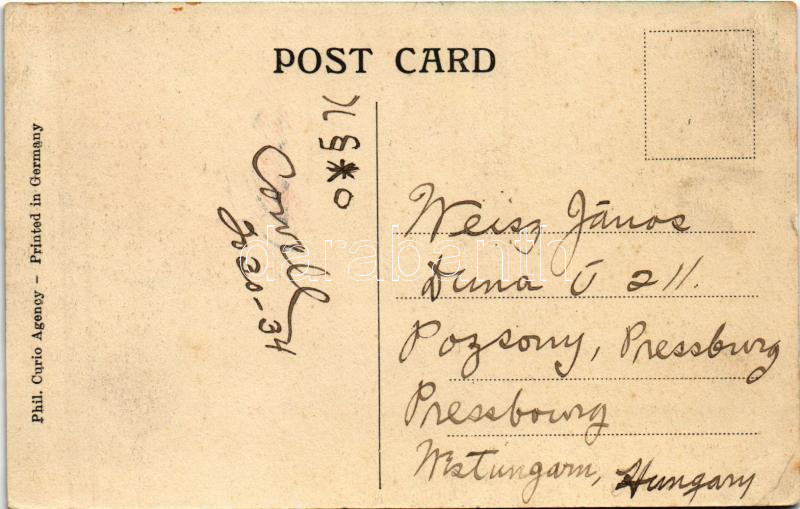 POST CARD
Phil. Curio Agency – Printed in Germany
§*o
20-34
Weisz János
Duna Ú 211.
Pozsony, Pressburg
Pressbourg
Westungarn, Hungary
darabanth